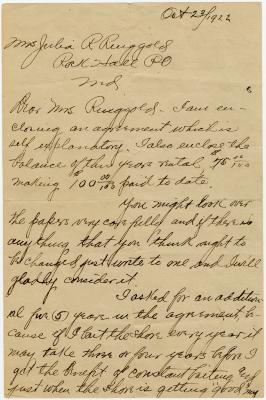 Oct 23/1922
Mrs Julia R Ringgold
Rock Hall PO
Md
Dear Mrs Ringgold - I am en-
closing an agreement which is
self explanatory. I also enclose the
balance of this years rental $75 00/100
making $100 00/100 paid to date.
You might look over
the papers very carefully and if there is
anything that you think ought to
be changed just write to me and I will
gladly consider it.
I asked for an addition-
al five (5) years in the agreement, be-
cause if I bait the shore every year it
may take three or four years before I
get the benefit of constant baiting and
just when the shore is getting "good"